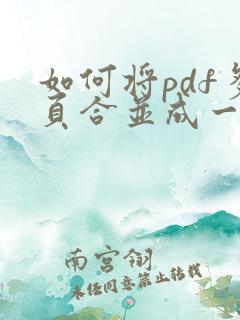 如何将pdf多
页合并成一
南宫翎
未经同意禁止转载